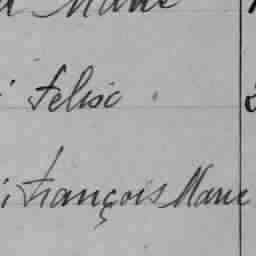 Marie
Felise
François Marie